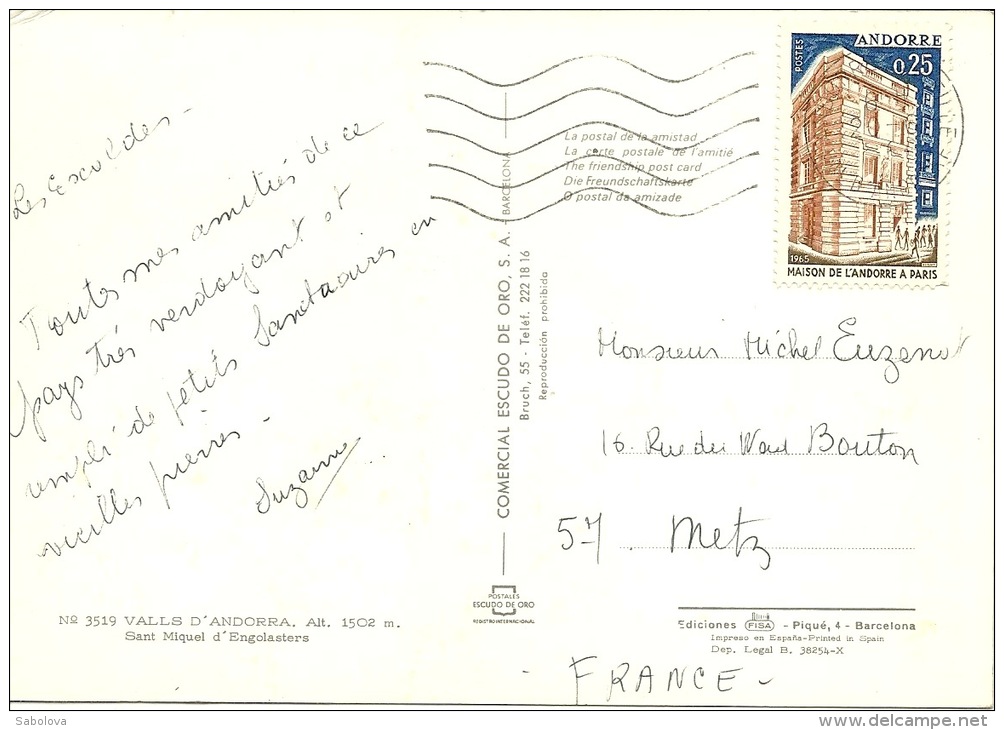 Les Escaldes -
Toutes mes amitiés de ce
pays très verdoyant et
rempli de petits Sanctuaires en
vieilles pierres -
Suzanne
Nº 3519 VALLS D'ANDORRA. Alt. 1502 m.
Sant Miquel d'Engolasters
COMERCIAL ESCUDO DE ORO, S. A. - BARCELONA
Bruch, 55 - Teléf. 222 18 16
Reproducción prohibida
POSTALES
ESCUDO DE ORO
REGISTRO INTERNACIONAL
La postal de la amistad
La carte postale de l'amitié
The friendship post card
Die Freundschaftskarte
O postal da amizade
POSTES
ANDORRE
0,25
1965
MAISON DE L'ANDORRE A PARIS
Monsieur Michel Euzenat
16. Rue du Bouton
57. Metz
Ediciones FISA - Piqué, 4 - Barcelona
Impreso en España-Printed in Spain
Dep. Legal B. 38254-X
- FRANCE -
Sabolova
delcampe.net